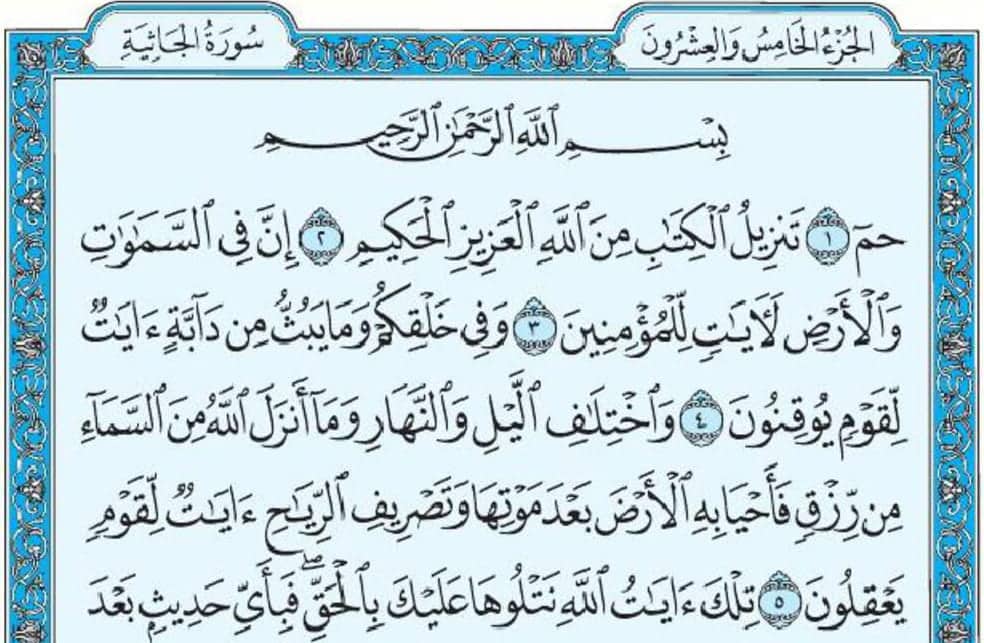 الجُزْءُ الخَامِسُ وَالعِشْرُونَ
سُورَةُ الجَاثِيَةِ
بِسْمِ ٱللَّهِ ٱلرَّحْمَٰنِ ٱلرَّحِيمِ
حمٓ ١ تَنزِيلُ ٱلْكِتَٰبِ مِنَ ٱللَّهِ ٱلْعَزِيزِ ٱلْحَكِيمِ ٢ إِنَّ فِي ٱلسَّمَٰوَٰتِ
وَٱلْأَرْضِ لَأٓيَٰتٍ لِّلْمُؤْمِنِينَ ٣ وَفِي خَلْقِكُمْ وَمَا يَبُثُّ مِن دَآبَّةٍ ءَايَٰتٌ
لِّقَوْمٍ يُوقِنُونَ ٤ وَٱخْتِلَٰفِ ٱلَّيْلِ وَٱلنَّهَارِ وَمَآ أَنزَلَ ٱللَّهُ مِنَ ٱلسَّمَآءِ
مِن رِّزْقٍ فَأَحْيَا بِهِ ٱلْأَرْضَ بَعْدَ مَوْتِهَا وَتَصْرِيفِ ٱلرِّيَٰحِ ءَايَٰتٌ لِّقَوْمٍ
يَعْقِلُونَ ٥ تِلْكَ ءَايَٰتُ ٱللَّهِ نَتْلُوهَا عَلَيْكَ بِٱلْحَقِّ ۖ فَبِأَيِّ حَدِيثٍۭ بَعْدَ